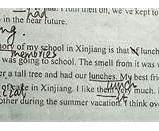 had
. From then on, we've kept to
in the near future.
ng.
ory of my school in Xinjiang is that lunch
memories
was going to school. The smell from it was v
er a tall tree and had our lunches. My best frie
of cake in Xinjiang. I like them very much. I
other during the summer vacation. I think ove